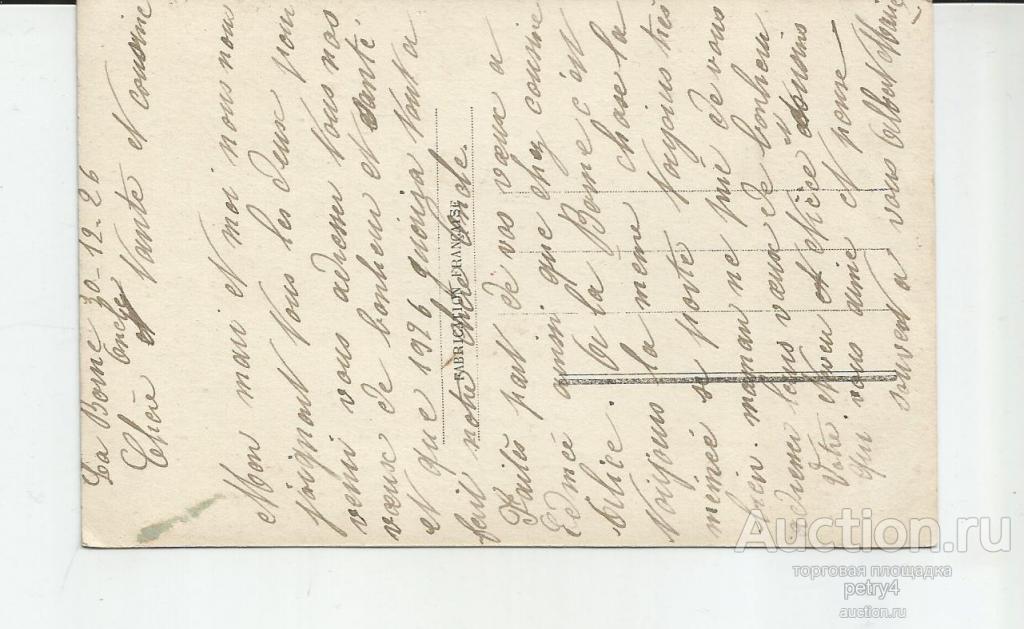 La Borne 30-12-26
Chère Oncle et Tante et cousine
Mon mari et moi nous nous
joignont tous les deux pour
venir vous adresser tous nos
vœux de bonheur et santé
et que 1926 guerija tout a
fait notre
Faites part de vos vœux a
Edmée ainsi que chez cousine
Alice. A la Borne c'est
toujours la même chose la
mémée se porte toujours très
bien. maman me prie de vous
adresser leurs vœux de bonheur
Votre neveu et nièce cousins
qui vous aime et pense
souvent a vous Albert Marie
FABRICATION FRANÇAISE
Auction.ru
торговая площадка
petry4
auction.ru